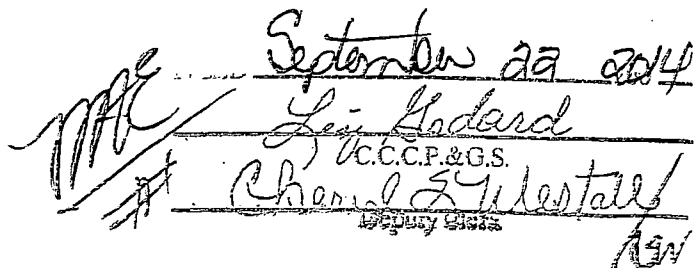 September 22 2014
Godard
C.C.C.P.&G.S.
Cheryl L Westall
Deputy Clerk